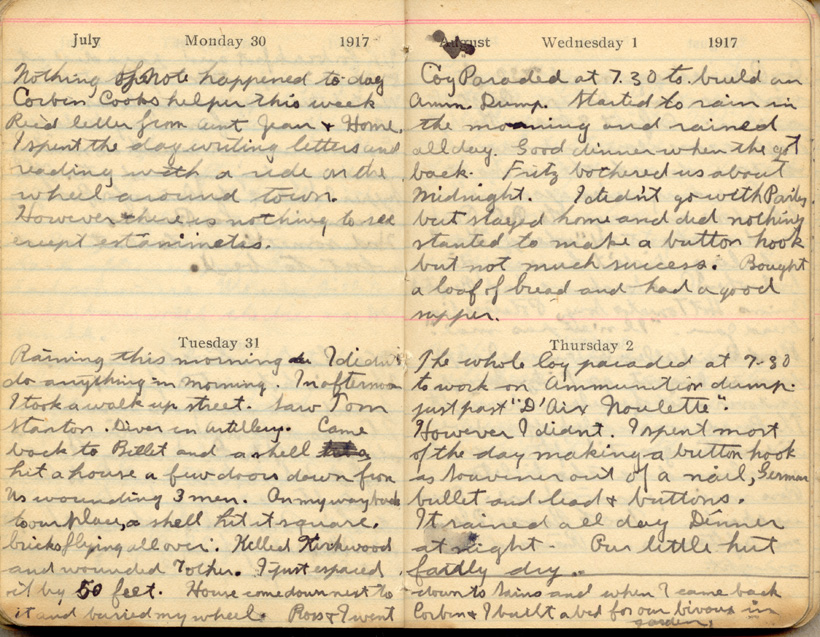 July Monday 30 1917
Nothing of note happened to-day
Corbin Cooks helper this week
Rec'd letter from Aunt Jean & Home.
I spent the day writing letters and
reading with a ride on the
wheel around town.
However there is nothing to see
except estaminets.
Tuesday 31
Raining this morning I didn't
do anything in morning. In afternoon
I took a walk up street. Saw Tom
Stanton. Driver in Artillery. Came
back to Billet and a shell
hit a house a few doors down from
us wounding 3 men. On my way back
to our place, a shell hit it square.
bricks flying all over. Killed Kirkwood
and wounded 7 other. I just escaped
it by 50 feet. House come down next to
it and buried my wheel. Ross & I went
August Wednesday 1 1917
Coy Paraded at 7.30 to build an
Amm. Dump. Started to rain in
the morning and rained
all day. Good dinner when the got
back. Fritz bothered us about
Midnight. I didn't go with
but stayed home and did nothing
started to make a button hook
but not much success. Bought
a loaf of bread and had a good
supper.
Thursday 2
The whole Coy paraded at 7-30
to work on Ammunition dump.
just past "D'Aix Noulette".
However I didnt. I spent most
of the day making a button hook
as souvenir out of a nail, German
bullet and lead & buttons.
It rained all day Dinner
at night. Our little hut
fairly dry.
down to Sains and when I came back
Corbin & I built a bed for our bivoux in
garden.